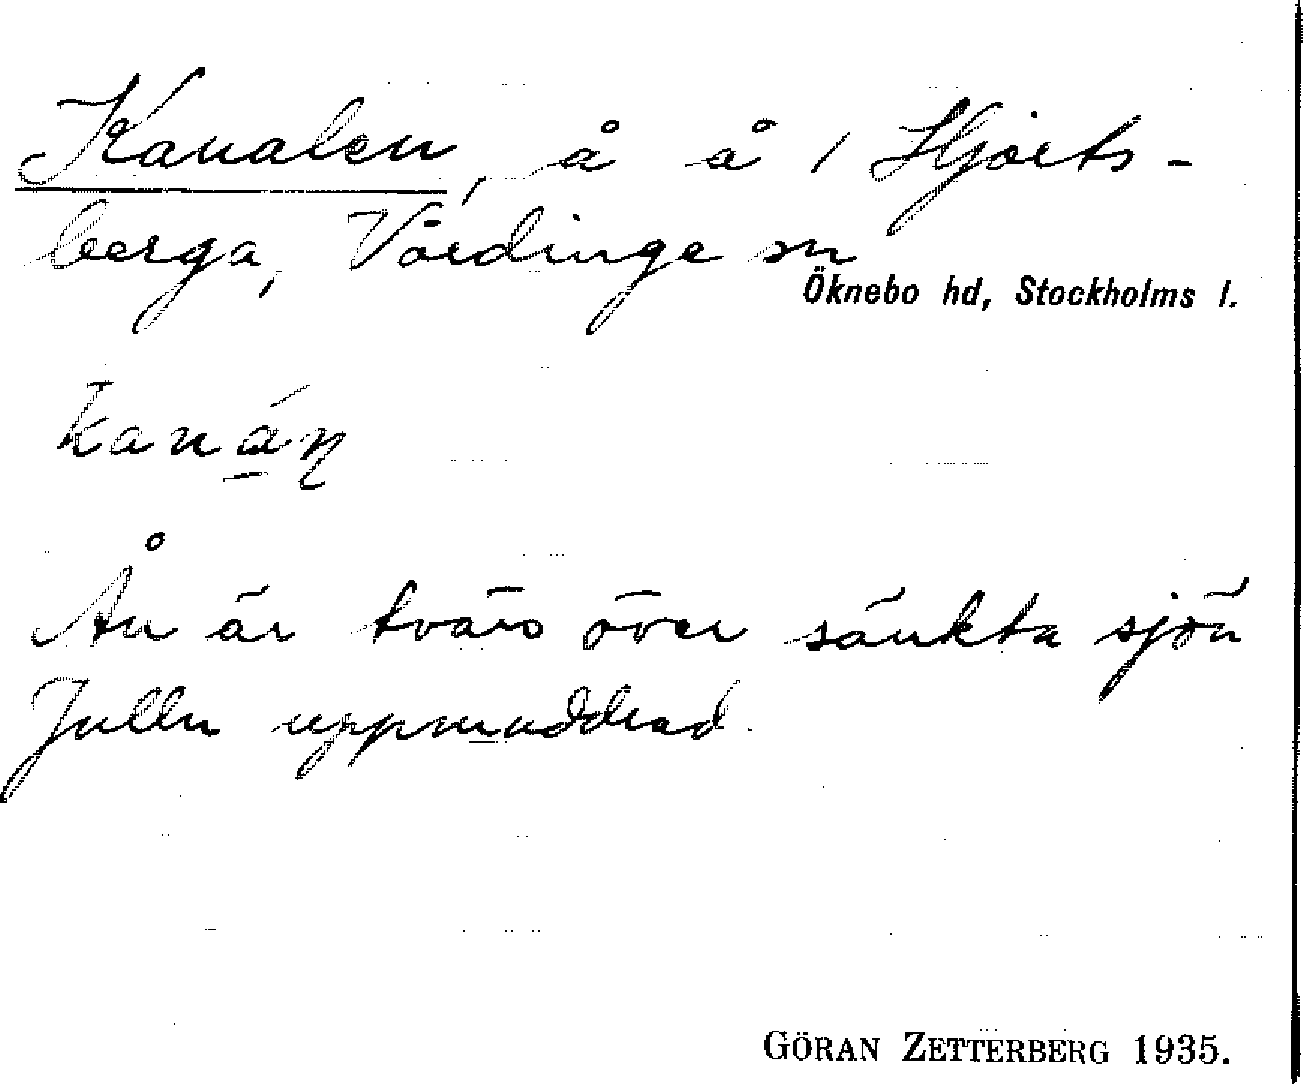 Kanalen, å å i Hjorts-
berga, Vårdinge sn
Öknebo hd, Stockholms l.
kanáṇ
Ån är tvärs över sänkta sjön
Jullen uppmuddrad.
GÖRAN ZETTERBERG 1935.